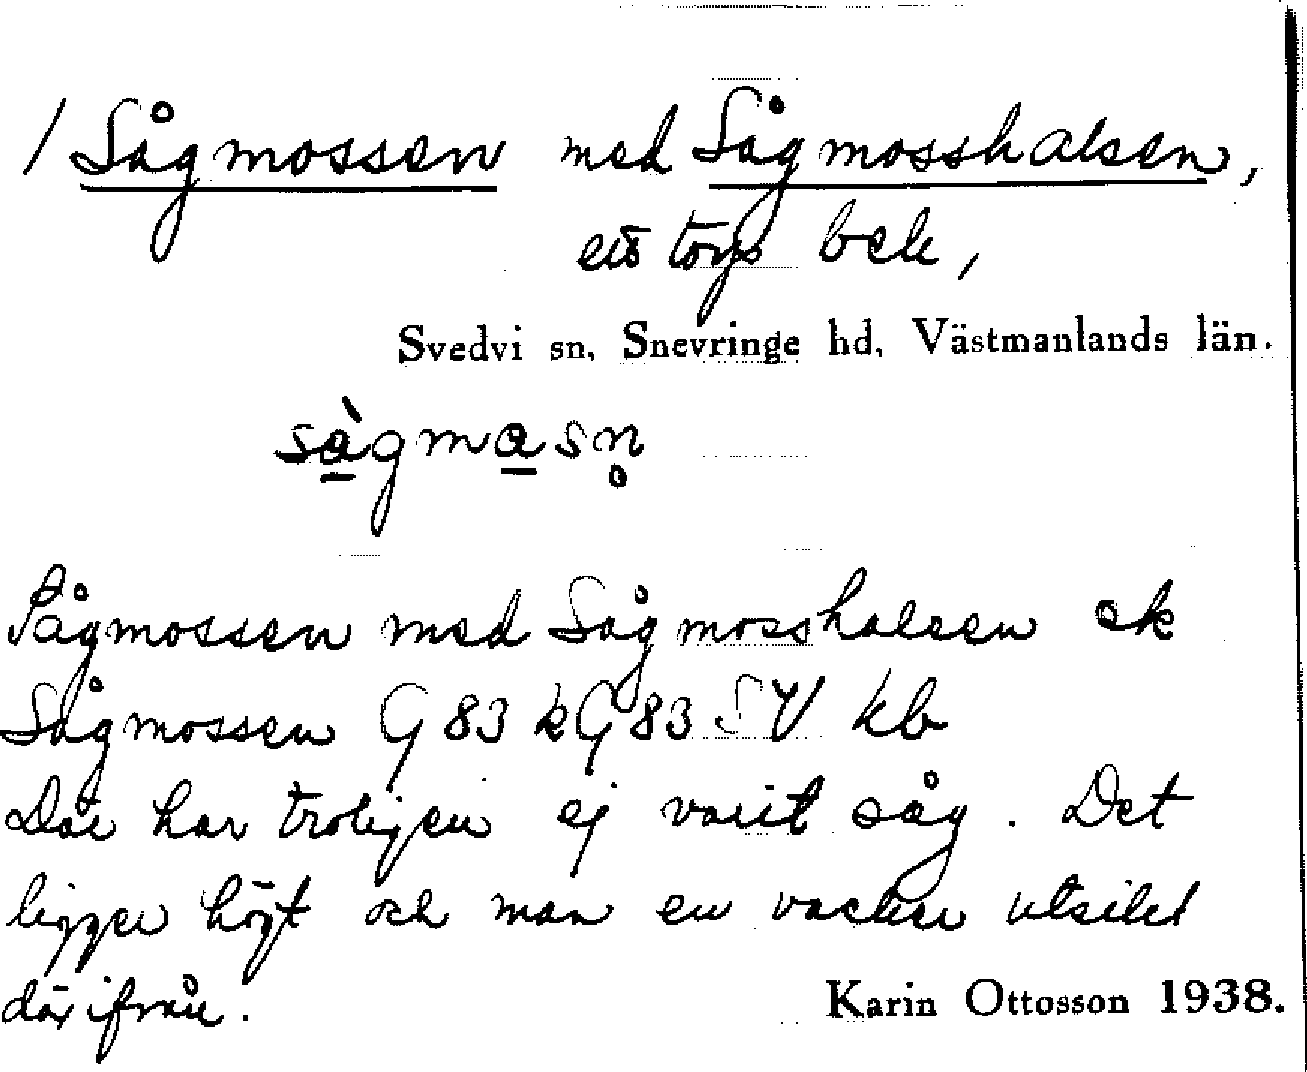 / Sågmossen med Sågmosshalsen,
ett torp beb,
Svedvi sn. Snevringe hd. Västmanlands län.
sàgmasn̥
Sågmossen med Sågmosshalsen ek
Sågmossen G 83 k G 83 SV kb
Där har troligen ej varit såg. Det
ligger högt och man en vacker utsikt
därifrån.
Karin Ottosson 1938.